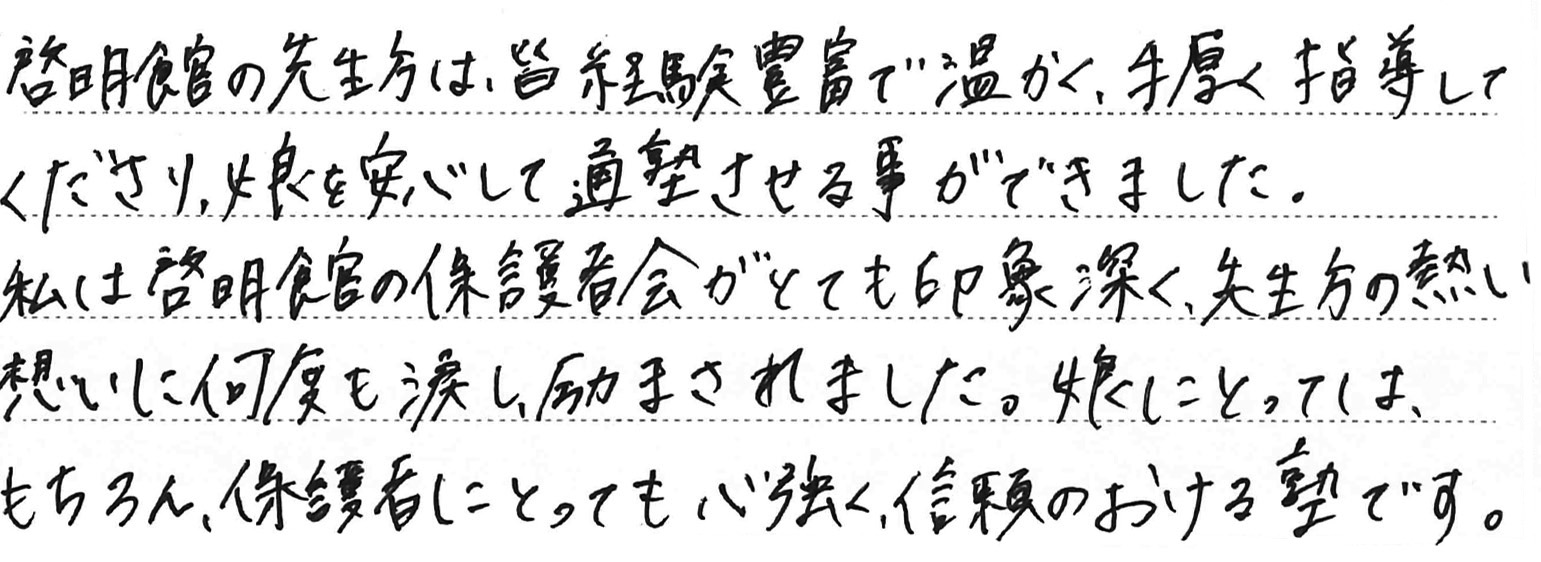 啓明館の先生方は、皆経験豊富で温かく、手厚く指導して
くださり、娘を安心して通塾させる事ができました。
私は啓明館の保護者会がとても印象深く、先生方の熱い
想いに何度も涙し、励まされました。娘にとっては、
もちろん、保護者にとっても心強く、信頼のおける塾です。